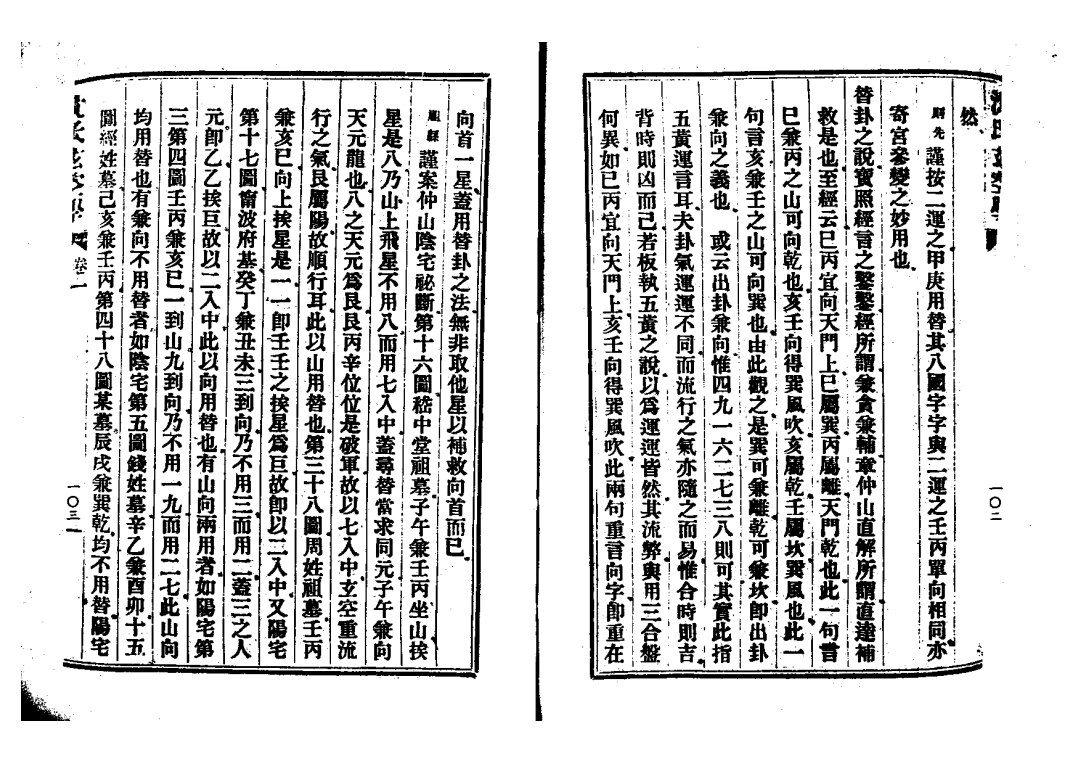 然
則先 謹按二運之甲庚用替其八國字字與二運之壬丙單向相同亦
寄宮參變之妙用也
替卦之說寶照經言之鑿鑿經所謂兼貪兼輔章仲山直解所謂直達補
救是也至經云巳丙宜向天門上巳屬巽丙屬離天門乾也此一句言
巳兼丙之山可向乾也亥壬向得巽風吹亥屬乾壬屬坎巽風也此一
句言亥兼壬之山可向巽也由此觀之是巽可兼離乾可兼坎即出卦
兼向之義也 或云出卦兼向惟四九一六二七三八則可其實此指
五黃運言耳夫卦氣運運不同而流行之氣亦隨之而易惟合時則吉
背時則凶而已若板執五黃之說以爲運運皆然其流弊與用三合盤
何異如巳丙宜向天門上亥壬向得巽風吹此兩句重言向字即重在
一〇二
向首一星蓋用替卦之法無非取他星以補救向首而已
謹案仲山陰宅祕斷第十六圖嵇中堂祖墓子午兼壬丙坐山挨
星是八乃山上飛星不用八而用七入中蓋尋替當求同元子午兼向
天元龍也八之天元爲艮艮丙辛位位是破軍故以七入中玄空重流
行之氣艮屬陽故順行耳此以山用替也第三十八圖周姓祖墓壬丙
兼亥巳向上挨星是一一卽壬壬之挨星爲巨故卽以二入中又陽宅
第十七圖甯波府基癸丁兼丑未三到向乃不用三而用二蓋三之人
元卽乙乙挨巨故以二入中此以向用替也有山向兩用者如陽宅第
三第四圖壬丙兼亥巳一到山九到向乃不用一九而用二七此山向
均用替也有兼向不用替者如陰宅第五圖錢姓墓辛乙兼酉卯十五
圖經姓墓己亥兼壬丙第四十八圖某墓辰戌兼巽乾均不用替陽宅
卷二
一〇三